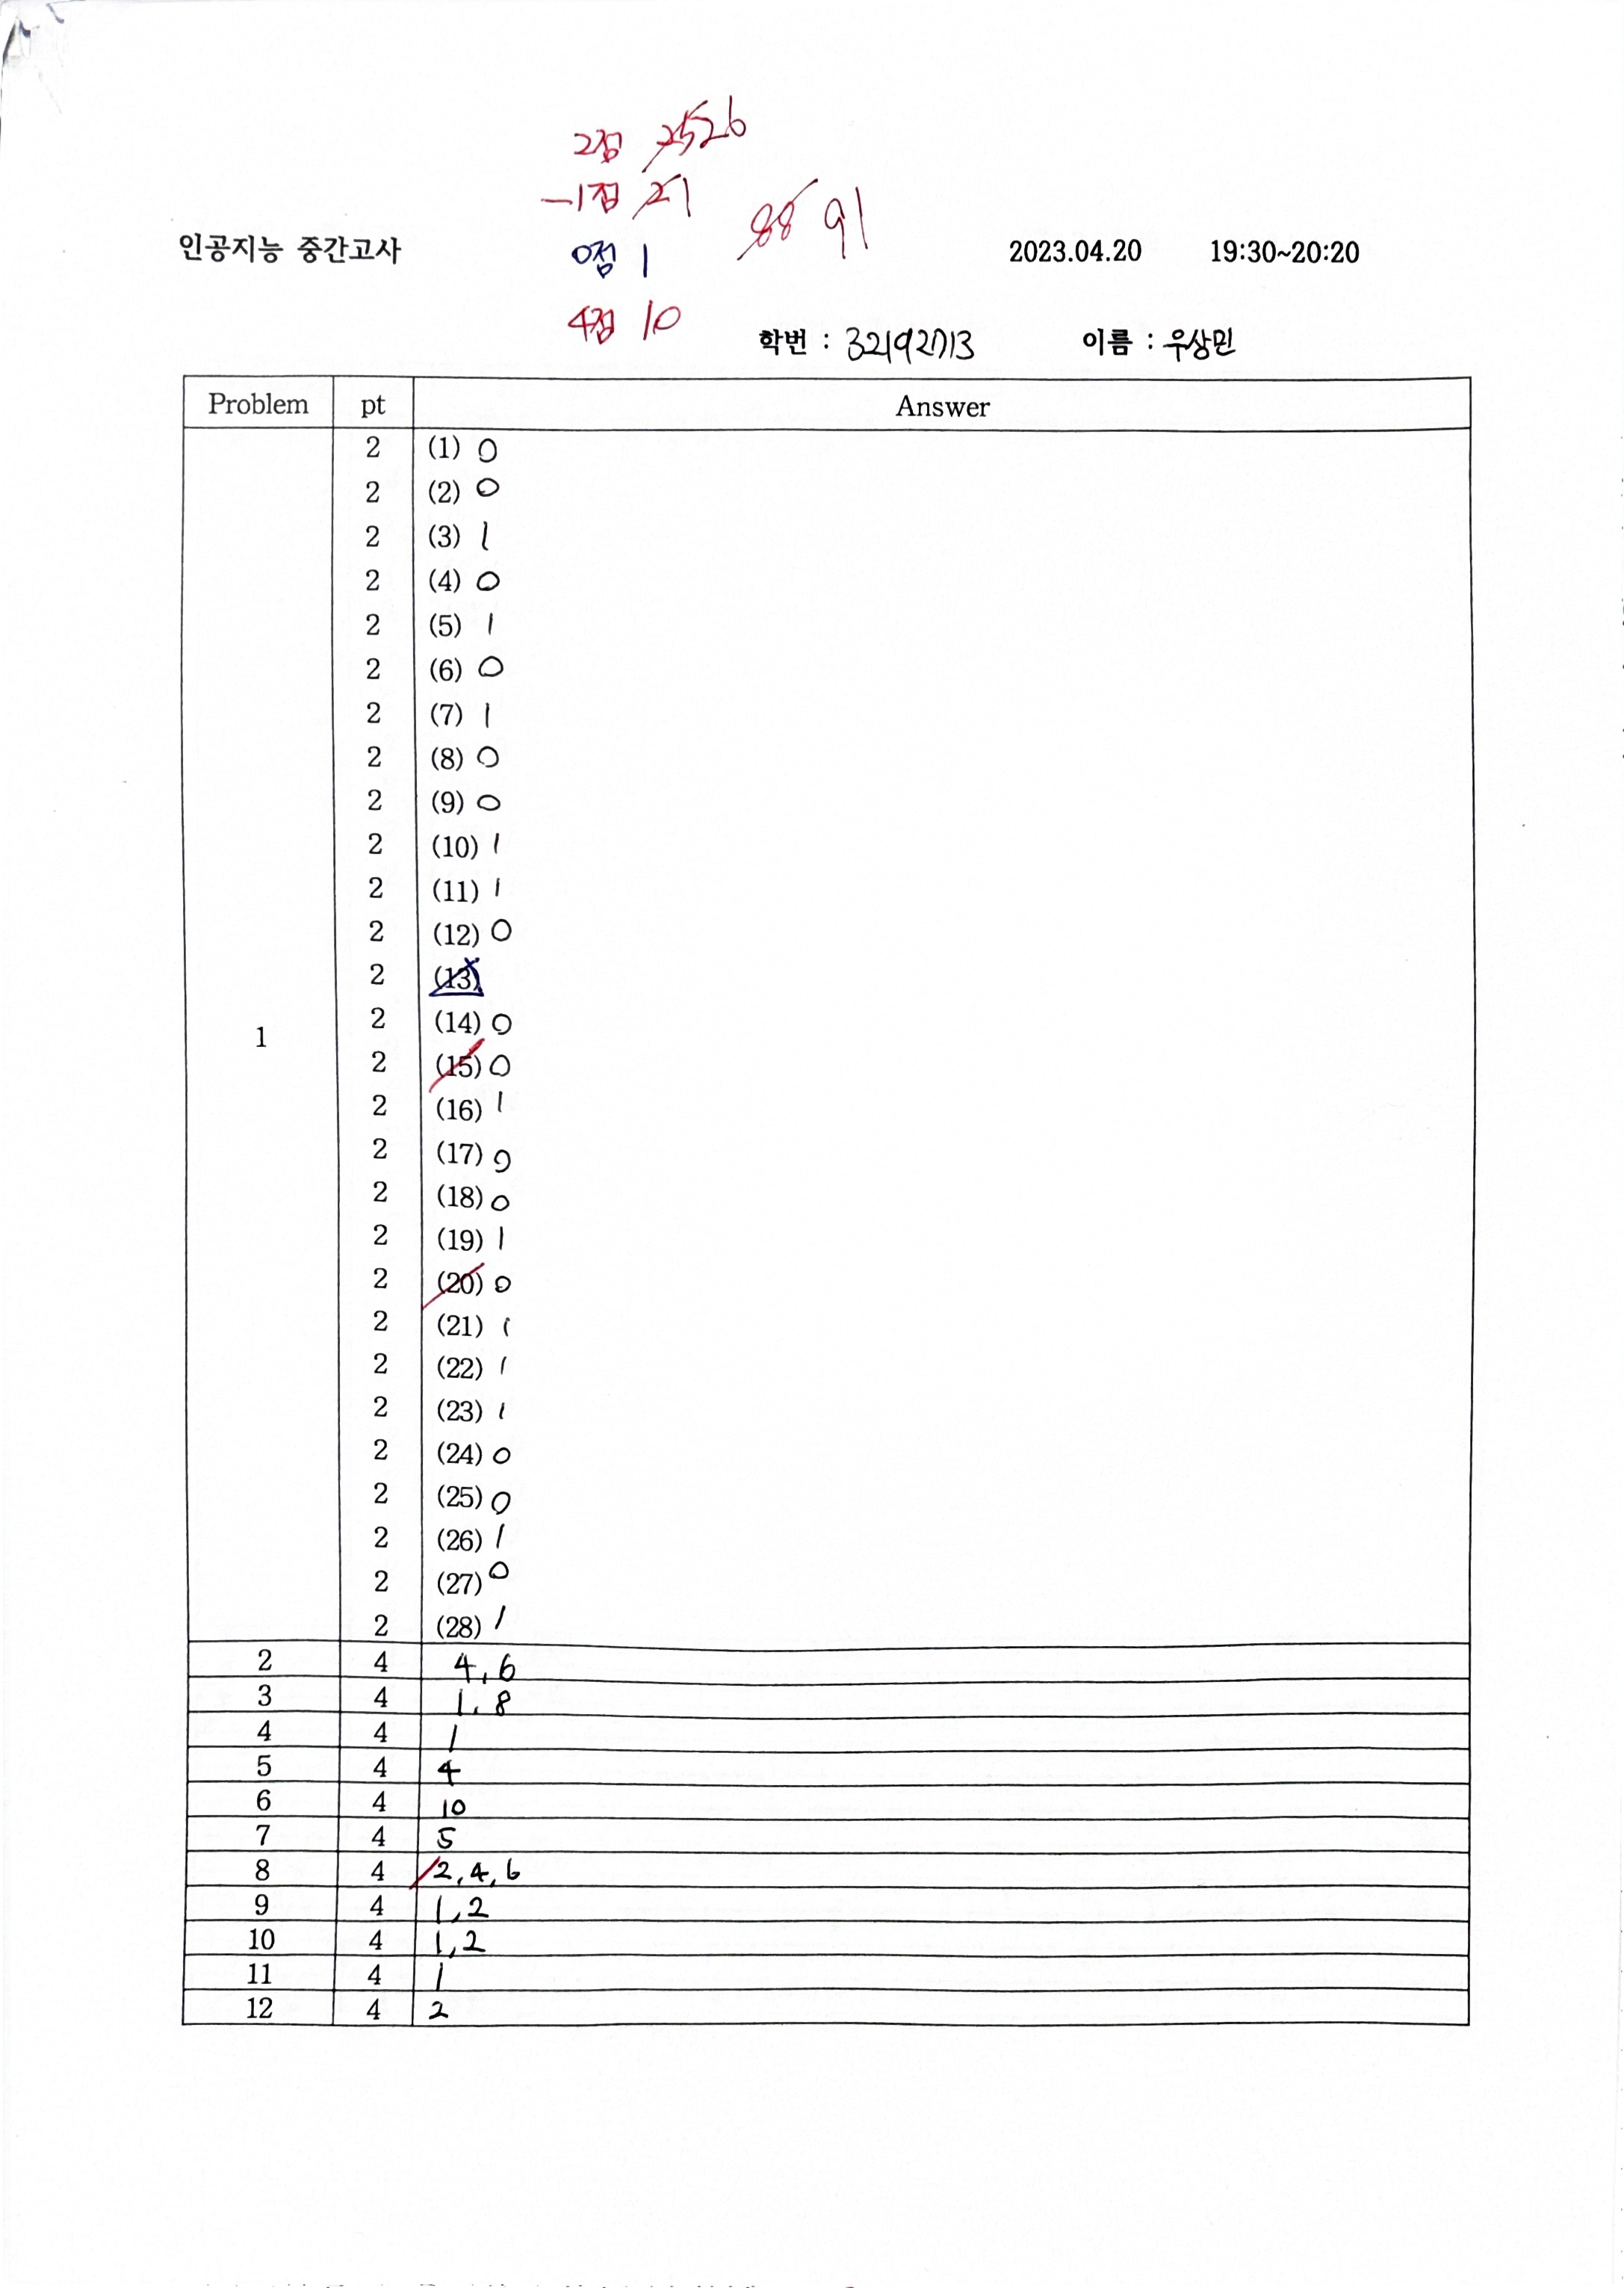 2점 25 26
-1점 2 1
88 91
인공지능 중간고사 0점 1 2023.04.20 19:30~20:20
4점 10
학번 : 32192713 이름 : 우상민
Problem pt Answer
2 (1) 0
2 (2) 0
2 (3) 1
2 (4) 0
2 (5) 1
2 (6) 0
2 (7) 1
2 (8) 0
2 (9) 0
2 (10) 1
2 (11) 1
2 (12) 0
2 (13)
2 (14) 0
1
2 (15) 0
2 (16) 1
2 (17) 0
2 (18) 0
2 (19) 1
2 (20) 0
2 (21) 1
2 (22) 1
2 (23) 1
2 (24) 0
2 (25) 0
2 (26) 1
2 (27) 0
2 (28) 1
2 4 4, 6
3 4 1, 8
4 4 1
5 4 4
6 4 10
7 4 5
8 4 2, 4, 6
9 4 1, 2
10 4 1, 2
11 4 1
12 4 2